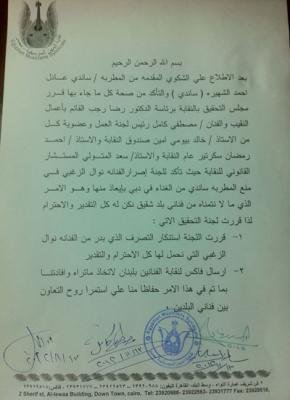 Egyptian Musicians Syndicate
بسم الله الرحمن الرحيم
بعد الاطلاع علي الشكوي المقدمه من المطربه / ساندي عادل
احمد الشهيره ( ساندي ) والتأكد من صحة كل ما جاء بها قرر
مجلس التحقيق بالنقابة برئاسة الدكتور رضا رجب القائم بأعمال
النقيب والفنان / مصطفي كامل رئيس لجنة العمل وعضوية كل
من الاستاذ / خالد بيومي امين صندوق النقابة والاستاذ / احمد
رمضان سكرتير عام النقابة والاستاذ / سعد المتولي المستشار
القانوني للنقابة حيث تأكد للجنة إصرار الفنانه نوال الزغبي في
منع المطربه ساندي من الغناء في دبي بإيعاذ منها وهو الامر
الذي ما لا نتمناه من فناني بلد شقيق نكن له كل التقدير والاحترام
لذا قررت لجنة التحقيق الاتي :
١- قررت اللجنة استنكار التصرف الذي بدر من الفنانه نوال
الزغبي التي نحمل لها كل الاحترام والتقدير
٢- ارسال فاكس لنقابة الفنانين بلبنان لاتخاذ ماتراه وافادتنا
بما تم في هذا الامر حفاظا منا علي استمرا روح التعاون
بين فناني البلدين .
٢ ش شريف عمارة اللواء - وسط البلد - القاهرة
2 Sherif st, Al-lewaa Building, Down Town, cairo, Tel: